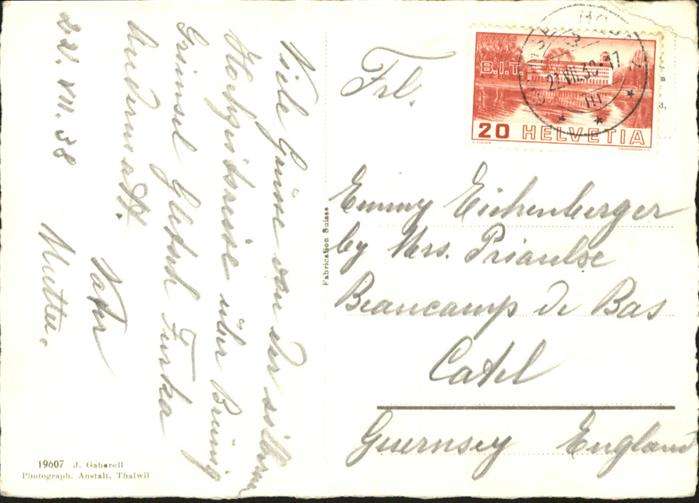 22. VII. 38
Viele Grüsse von der silbernen
Hochzeitsreise über Brünig
Grimsel Gletsch Furka
Andermatt.
Vater
Mutter.
19607 J. Gaberell
Photograph. Anstalt, Thalwil
Fabrication Suisse
B.I.T.
20 HELVETIA
Frl.
Emmy Eichenberger
by Mrs. Priaulse
Beaucamp de Bas
Catel
Guernsey England